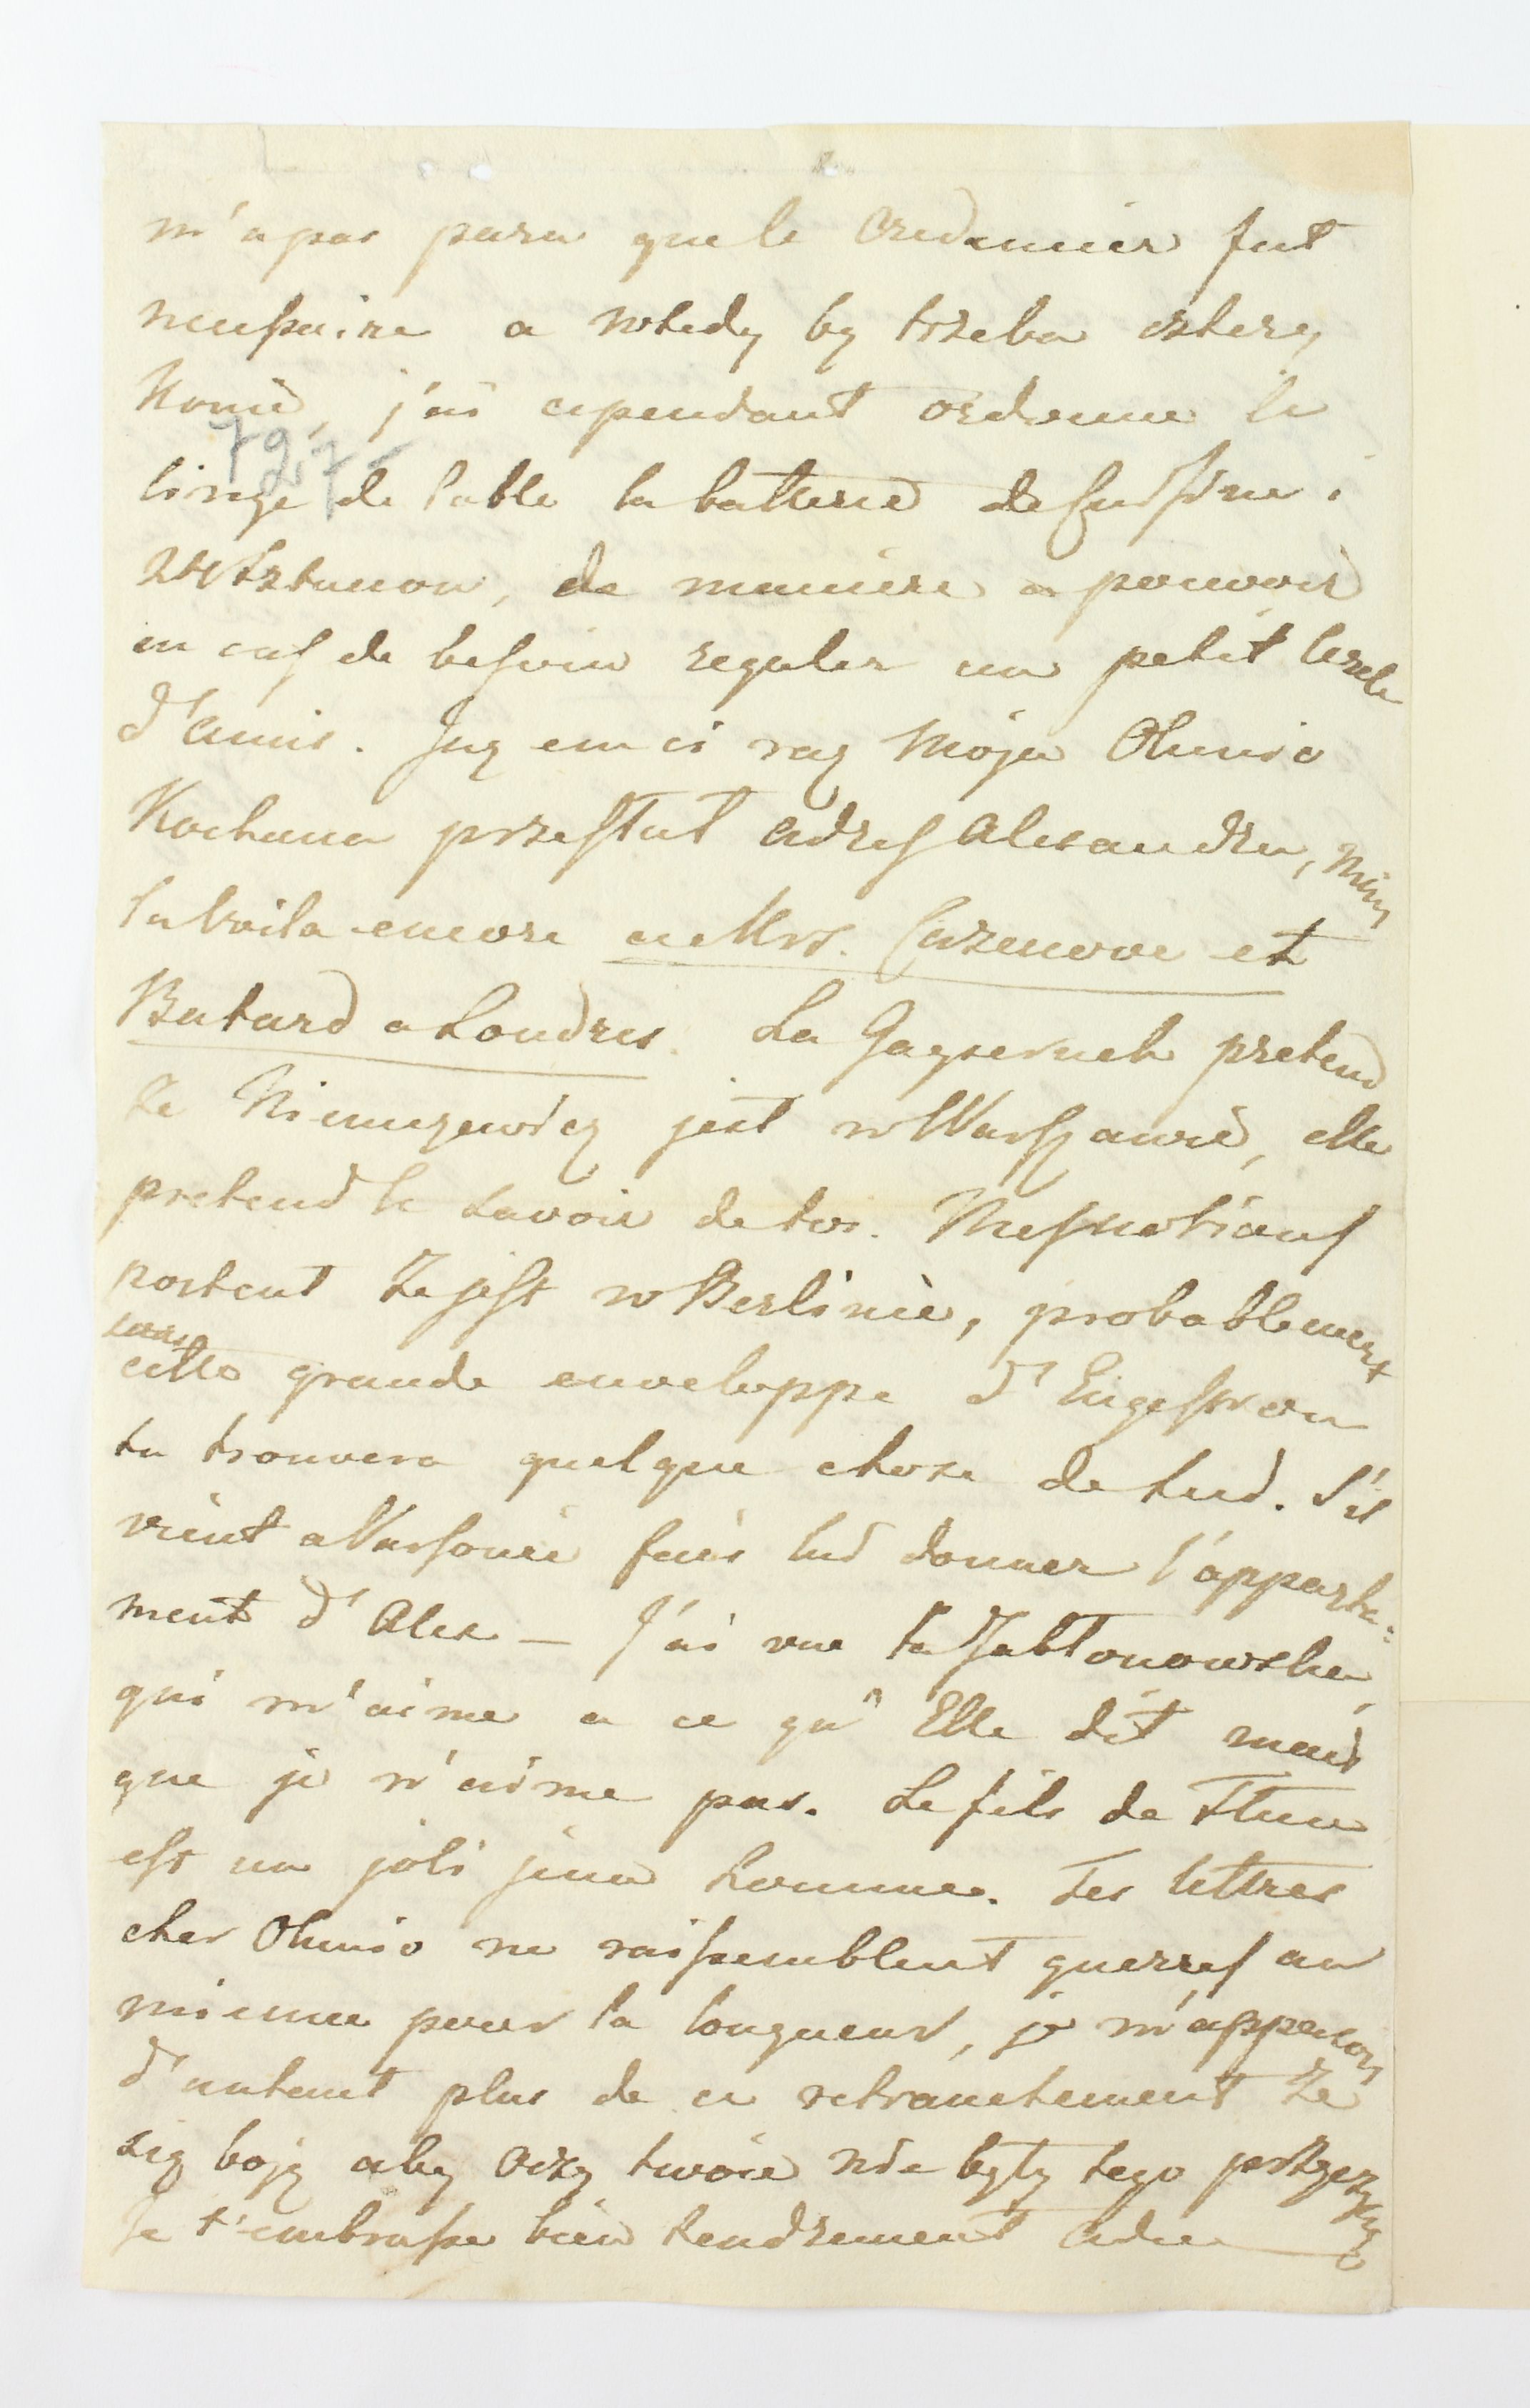 m'a pas paru que le Cuisinier fut
nécessaire a wtedy by trzeba cztery
Konie, j'ai cependant ordonne le
797
linge de table la batterie de cuisine i
zastawa, de maniere a pouvoir
en cas de besoin regaler un petit Cercle
d'amis. Juz em ci raz Moja Olunio
Kochana przestał adres Alexandra,
la voila encore a Mrs. Cazenove et
Batard a Londres. La Gagern pretend
ze Niemcewicz jest w Warszawie, elle
pretend le savoir de toi. Mes notions
portent ze jest w Berlinie, probablement
sous
cette grande enveloppe d'Engestron
tu trouvera quelque chose de lui. S'il
vient a Varsovie fais lui donner l'apparte:
ment d'Alex — J'ai vue la Jabłonowska,
qui m'aime a ce qu'Elle dit mais
que je n'aime pas. Le fils de Thun
est un joli jeune homme. Tes lettres
cher Olunio ne raissemblent guerres au
mienne pour la longueur, je m'appercois
d'autant plus de ce retranchement ze
się boję aby Oczy twoie nie były tego przyczyną
Je t'embrasse bien tendrement adieu